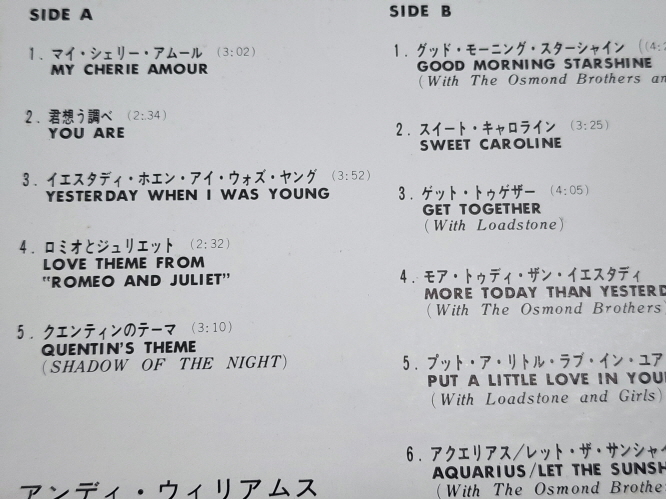 SIDE A
1. マイ・シェリー・アムール (3:02)
MY CHERIE AMOUR
2. 君想う調べ (2:34)
YOU ARE
3. イエスタディ・ホエン・アイ・ウォズ・ヤング (3:52)
YESTERDAY WHEN I WAS YOUNG
4. ロミオとジュリエット (2:32)
LOVE THEME FROM
"ROMEO AND JULIET"
5. クエンティンのテーマ (3:10)
QUENTIN'S THEME
(SHADOW OF THE NIGHT)
アンディ・ウィリアムス
SIDE B
1. グッド・モーニング・スターシャイン
GOOD MORNING STARSHINE
(With The Osmond Brothers
2. スイート・キャロライン (3:25)
SWEET CAROLINE
3. ゲット・トゥゲザー (4:05)
GET TOGETHER
(With Loadstone)
4. モア・トゥディ・ザン・イエスタディ
MORE TODAY THAN
(With The Osmond Brothers
5. プット・ア・リトル・ラブ・イン・ユア
PUT A LITTLE LOVE IN
(With Loadstone and Girls)
6. アクエリアス/レット・ザ・サンシャイ
AQUARIUS/LET THE
(With The Osmond